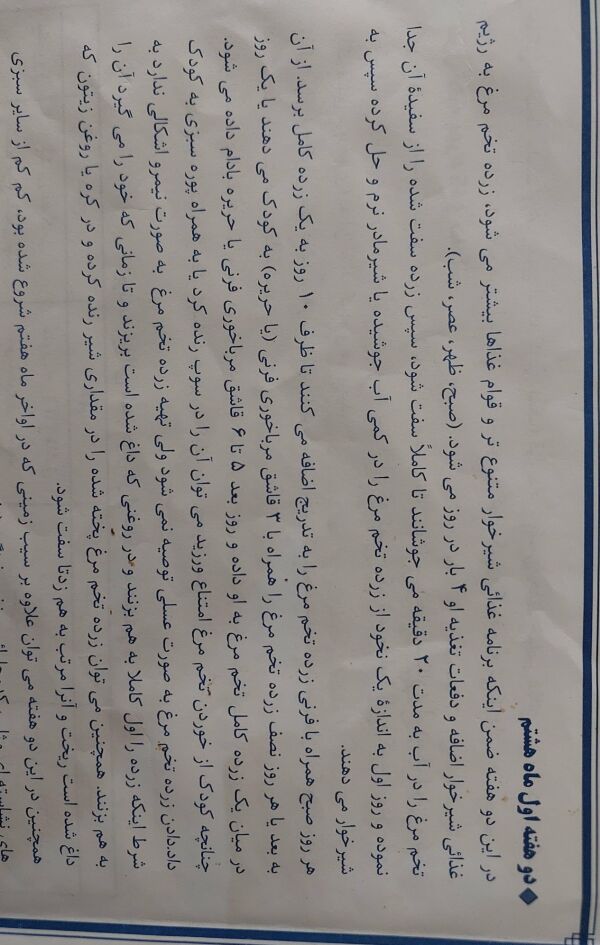 ◆ دو هفته اول ماه هشتم
در این دو هفته ضمن اینکه برنامه غذائی شیرخوار متنوع تر و قوام غذاها بیشتر می شود، زرده تخم مرغ به رژیم
غذائی شیرخوار اضافه و دفعات تغذیه او ۴ بار در روز می شود. (صبح، ظهر، عصر، شب).
تخم مرغ را در آب به مدت ۲۰ دقیقه می جوشانند تا کاملاً سفت شود، سپس زرده سفت شده را از سفیدهٔ آن جدا
نموده و روز اول به اندازهٔ یک نخود از زرده تخم مرغ را در کمی آب جوشیده یا شیرمادر نرم و حل کرده سپس به
شیرخوار می دهند.
هر روز صبح همراه با فرنی زرده تخم مرغ را به تدریج اضافه می کنند تا ظرف ۱۰ روز به یک زرده کامل برسد. از آن
به بعد یا هر روز نصف زرده تخم مرغ را همراه با ۳ قاشق مرباخوری فرنی (یا حریره) به کودک می دهند یا یک روز
در میان یک زرده کامل تخم مرغ به او داده و روز بعد ۵ تا ۶ قاشق مرباخوری فرنی یا حریره بادام داده می شود.
چنانچه کودک از خوردن تخم مرغ امتناع ورزید می توان آن را در سوپ رنده کرد یا به همراه پوره سبزی به کودک
داد.دادن زرده تخم مرغ به صورت عسلی توصیه نمی شود ولی تهیه زرده تخم مرغ به صورت نیمرو اشکالی ندارد به
شرط اینکه زرده را اول کاملا به هم بزنند و در روغنی که داغ شده است بریزند و تا زمانی که خود را می گیرد آن را
به هم بزنند. همچنین می توان زرده تخم مرغ پخته شده را در مقداری شیر رنده کرده و در کره یا روغن زیتون که
داغ شده است ریخت و آنرا مرتب به هم زدتا سفت شود.
همچنین در این دو هفته می توان علاوه بر سیب زمینی که در اواخر ماه هفتم شروع شده بود، کم کم از سایر سبزی
های نشاسته ای مثل